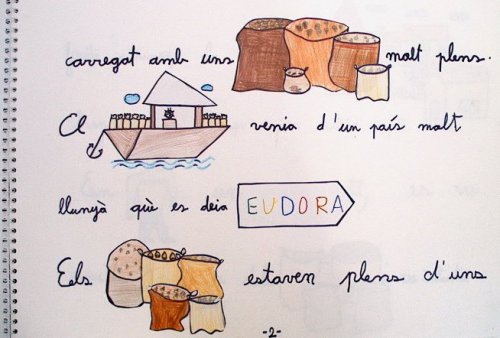 carregat amb uns malt plens.
El venia d'un país malt
llunyà què es deia EUDORA
Els estaven plens d'uns
-2-